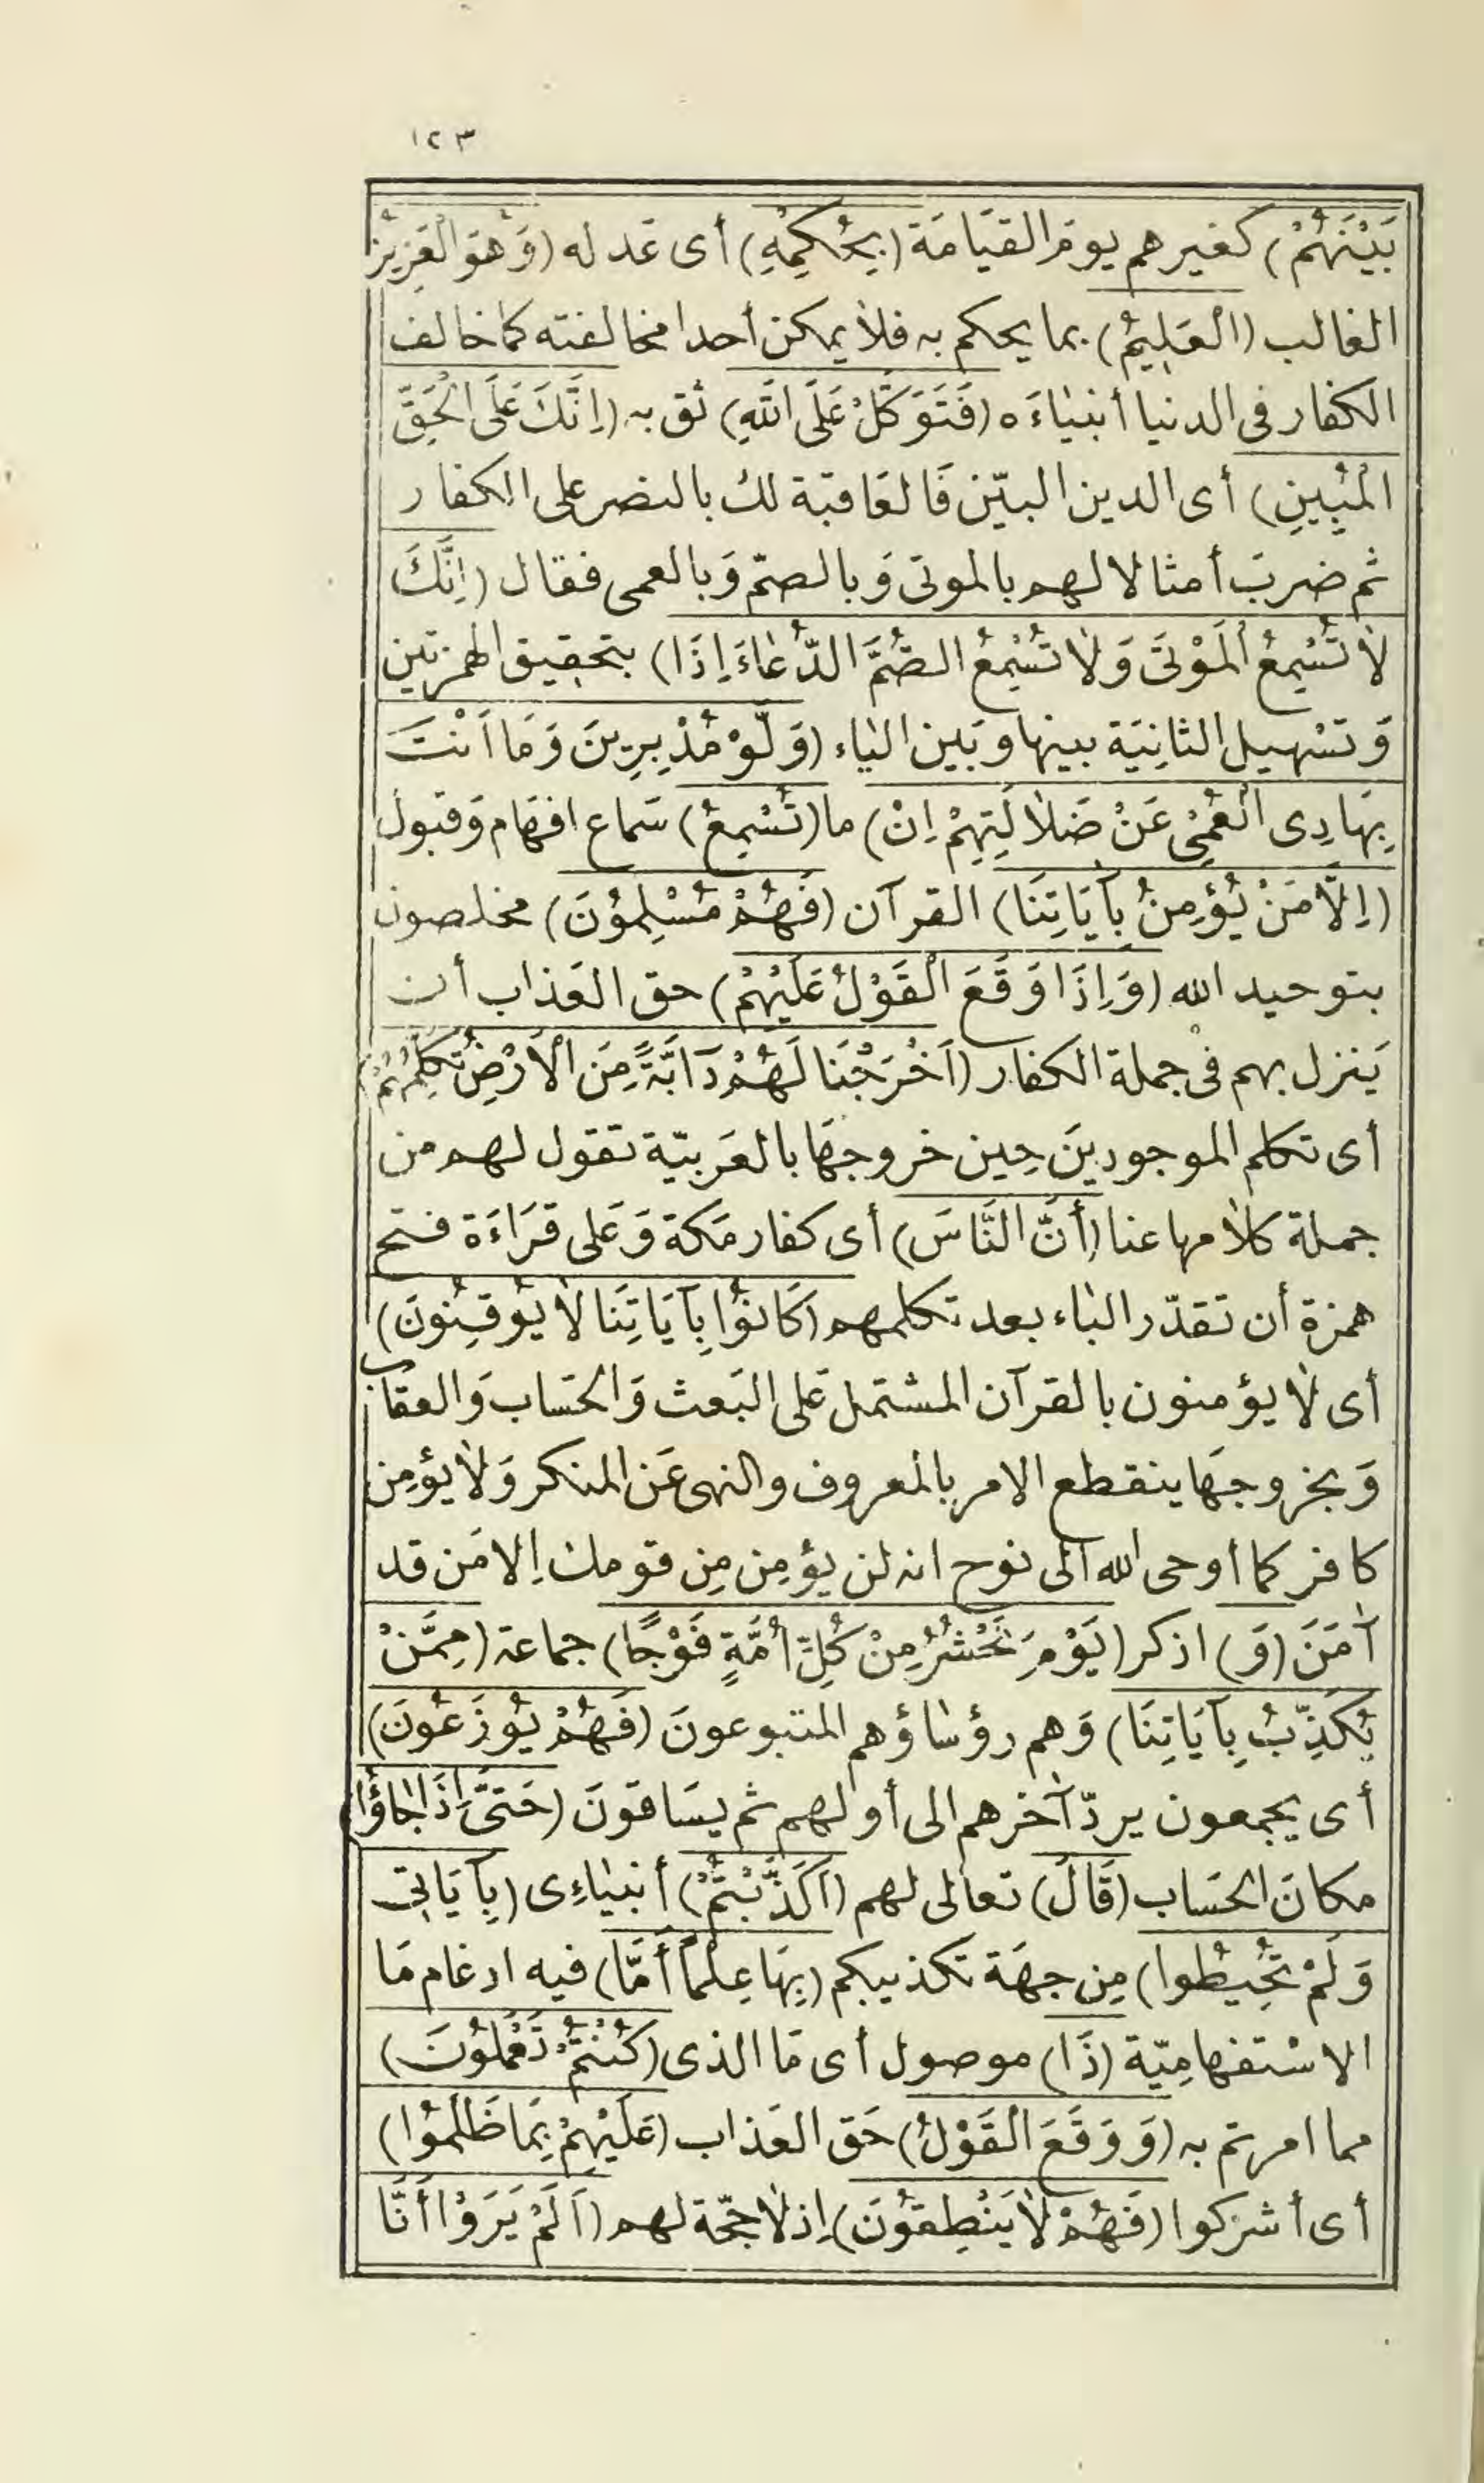 ١٢٣
بَيْنَهُمْ) كغيرهم يومَ القيَامَة (بِحُكْمِهِ) أى عَدله (وَهُوَ الْعَزِيزُ
الغالب (الْعَلِيمُ) بما يحكم به فلا يمكن أحدا مخالفته كما خالف
الكفار فى الدنيا أنبيَاءَه (فَتَوَكَّلْ عَلَى اللَّهِ) ثق به (اِنَّكَ عَلَى الْحَقِّ
الْمُبِينِ) أى الدين البيّن فَالعَاقبَة لك بالنصر على الكفار
ثم ضربَ أمثالا لهم بالموتى وَبالصمّ وَبالعمى فقال (اِنَّكَ
لَا تُسْمِعُ الْمَوْتَى وَلَا تُسْمِعُ الصُّمَّ الدُّعَاءَ اِذَا) بتحقيق الهمزتين
وَتسْهيل الثانِيَة بينها وبَين اليَاء (وَلَّوْ مُدْبِرِينَ وَمَا اَنْتَ
بِهَادِى الْعُمْىِ عَنْ ضَلَالَتِهِمْ اِنْ) ما (تُسْمِعُ) سَماع افهَام وَقبول
(اِلَّا مَنْ يُؤْمِنُ بِآيَاتِنَا) القرآن (فَهُمْ مُسْلِمُونَ) مخلصون
بتوحيد الله (وَاِذَا وَقَعَ الْقَوْلُ عَلَيْهِمْ) حق العَذاب أن
يَنزل بهم فى جملة الكفار (اَخْرَجْنَا لَهُمْ دَآبَّةً مِنَ الْاَرْضِ تُكَلِّمُهُمْ)
أى تكلم الموجودينَ حِين خروجهَا بالعَربيّة تقول لهم من
جملة كلامها عنا (أَنَّ النَّاسَ) أى كفار مَكة وَعَلى قرَاءَة فتح
همزة أن تقدّر البَاء بعد تكلمهم (كَانُوا بِآيَاتِنَا لَا يُوقِنُونَ)
أى لا يؤمنون بالقرآن المشتمل عَلى البَعث وَالحسَاب وَالعقاب
وَبخروجهَا ينقطع الامر بالمعروف والنهى عَن المنكر وَلا يؤمِن
كافر كما أوحى الله الى نوح انه لن يؤمِن مِن قومك اِلا مَن قد
آمَنَ (وَ) اذكر (يَوْمَ نَحْشُرُ مِنْ كُلِّ اُمَّةٍ فَوْجًا) جماعة (مِمَّنْ
يُكَذِّبُ بِآيَاتِنَا) وَهم رؤسَاؤهم المتبوعونَ (فَهُمْ يُوزَعُونَ)
أى يجمعون بردّ آخرهم الى أولهم ثم يسَاقونَ (حَتَّى اِذَا جَاؤُا)
مكانَ الحسَاب (قَالَ) تعالى لهم (اَكَذَّبْتُمْ) أنبيَاءِى (بِآيَاتِى
وَلَمْ تُحِيطُوا) مِن جهَة تكذيبكم (بِهَا عِلْمًا أَمَّا) فيه ادغام مَا
الاسْتفهامِيّة (ذَا) موصول أى مَا الذى (كُنْتُمْ تَعْمَلُونَ)
مما امرتم به (وَوَقَعَ الْقَوْلُ) حَق العَذاب (عَلَيْهِمْ بِمَا ظَلَمُوا)
أى أشركوا (فَهُمْ لَا يَنْطِقُونَ) اِذ لا حجّة لهم (اَلَمْ يَرَوْا أَنَّا